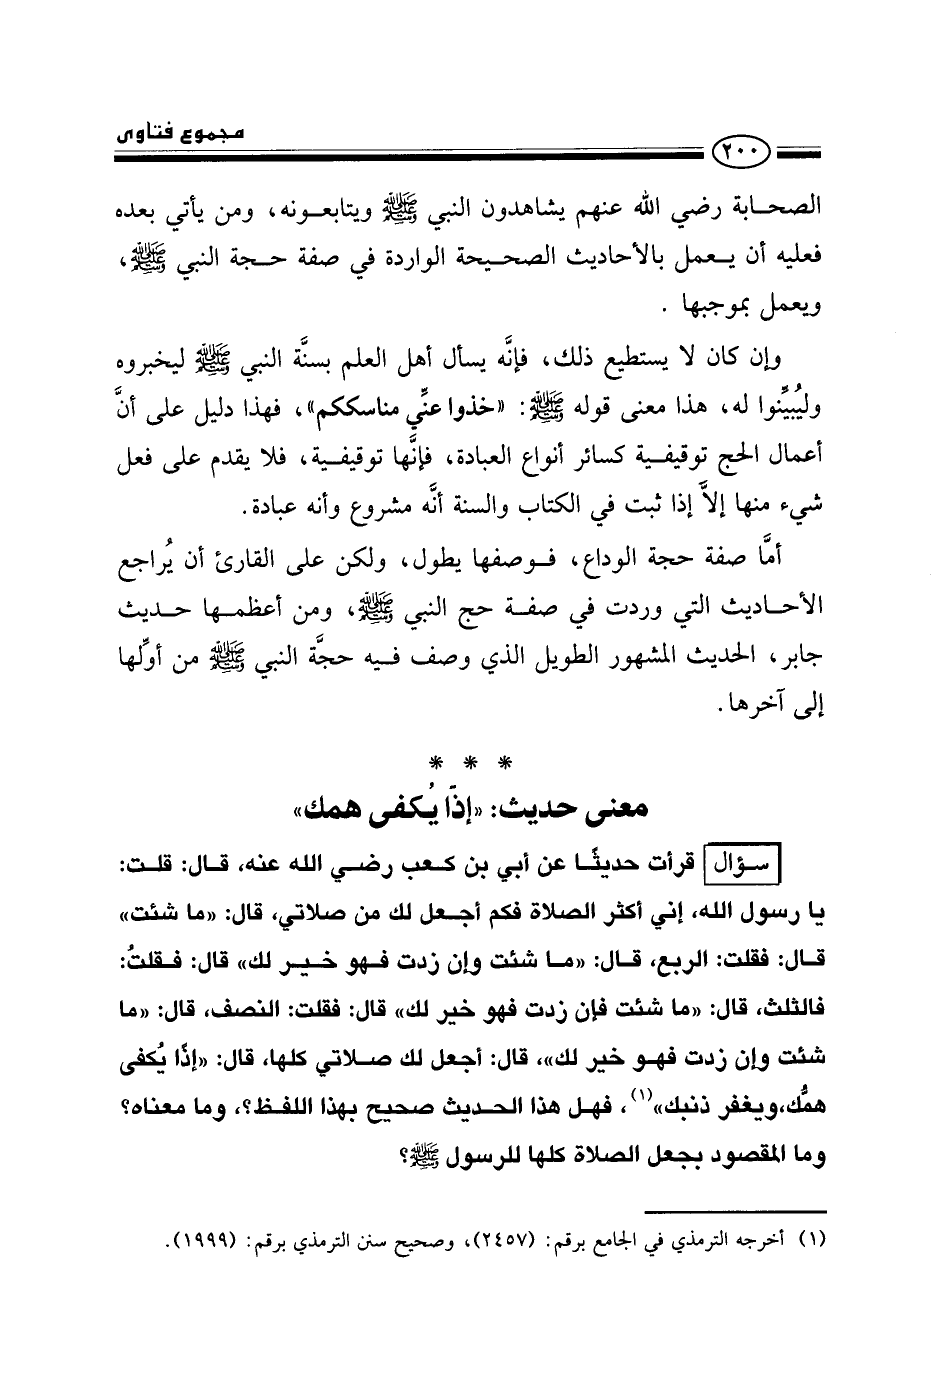 مجموع فتاوى
٢٠٠
الصحابة رضي الله عنهم يشاهدون النبي ﷺ ويتابعونه، ومن يأتي بعده
فعليه أن يعمل بالأحاديث الصحيحة الواردة في صفة حجة النبي ﷺ،
ويعمل بموجبها .
وإن كان لا يستطيع ذلك، فإنَّه يسأل أهل العلم بسنَّة النبي ﷺ ليخبروه
وليُبيِّنوا له، هذا معنى قوله ﷺ: «خذوا عنِّي مناسككم»، فهذا دليل على أنَّ
أعمال الحج توقيفية كسائر أنواع العبادة، فإنَّها توقيفية، فلا يقدم على فعل
شيء منها إلاَّ إذا ثبت في الكتاب والسنة أنَّه مشروع وأنه عبادة.
أمَّا صفة حجة الوداع، فوصفها يطول، ولكن على القارئ أن يُراجع
الأحاديث التي وردت في صفة حج النبي ﷺ، ومن أعظمها حديث
جابر، الحديث المشهور الطويل الذي وصف فيه حجَّة النبي ﷺ من أوِّلها
إلى آخرها.
* * *
معنى حديث: «إذًا يُكفى همك»
سؤال قرأت حديثًا عن أبي بن كعب رضي الله عنه، قال: قلت:
يا رسول الله، إني أكثر الصلاة فكم أجعل لك من صلاتي، قال: «ما شئت»
قال: فقلت: الربع، قال: «ما شئت وإن زدت فهو خير لك» قال: فقلتُ:
فالثلث، قال: «ما شئت فإن زدت فهو خير لك» قال: فقلت: النصف، قال: «ما
شئت وإن زدت فهو خير لك»، قال: أجعل لك صلاتي كلها، قال: «إذًا يُكفى
همُّك،ويغفر ذنبك»(١)، فهل هذا الحديث صحيح بهذا اللفظ؟، وما معناه؟
وما المقصود بجعل الصلاة كلها للرسول ﷺ؟
(١) أخرجه الترمذي في الجامع برقم: (٢٤٥٧)، وصحيح سنن الترمذي برقم: (١٩٩٩).